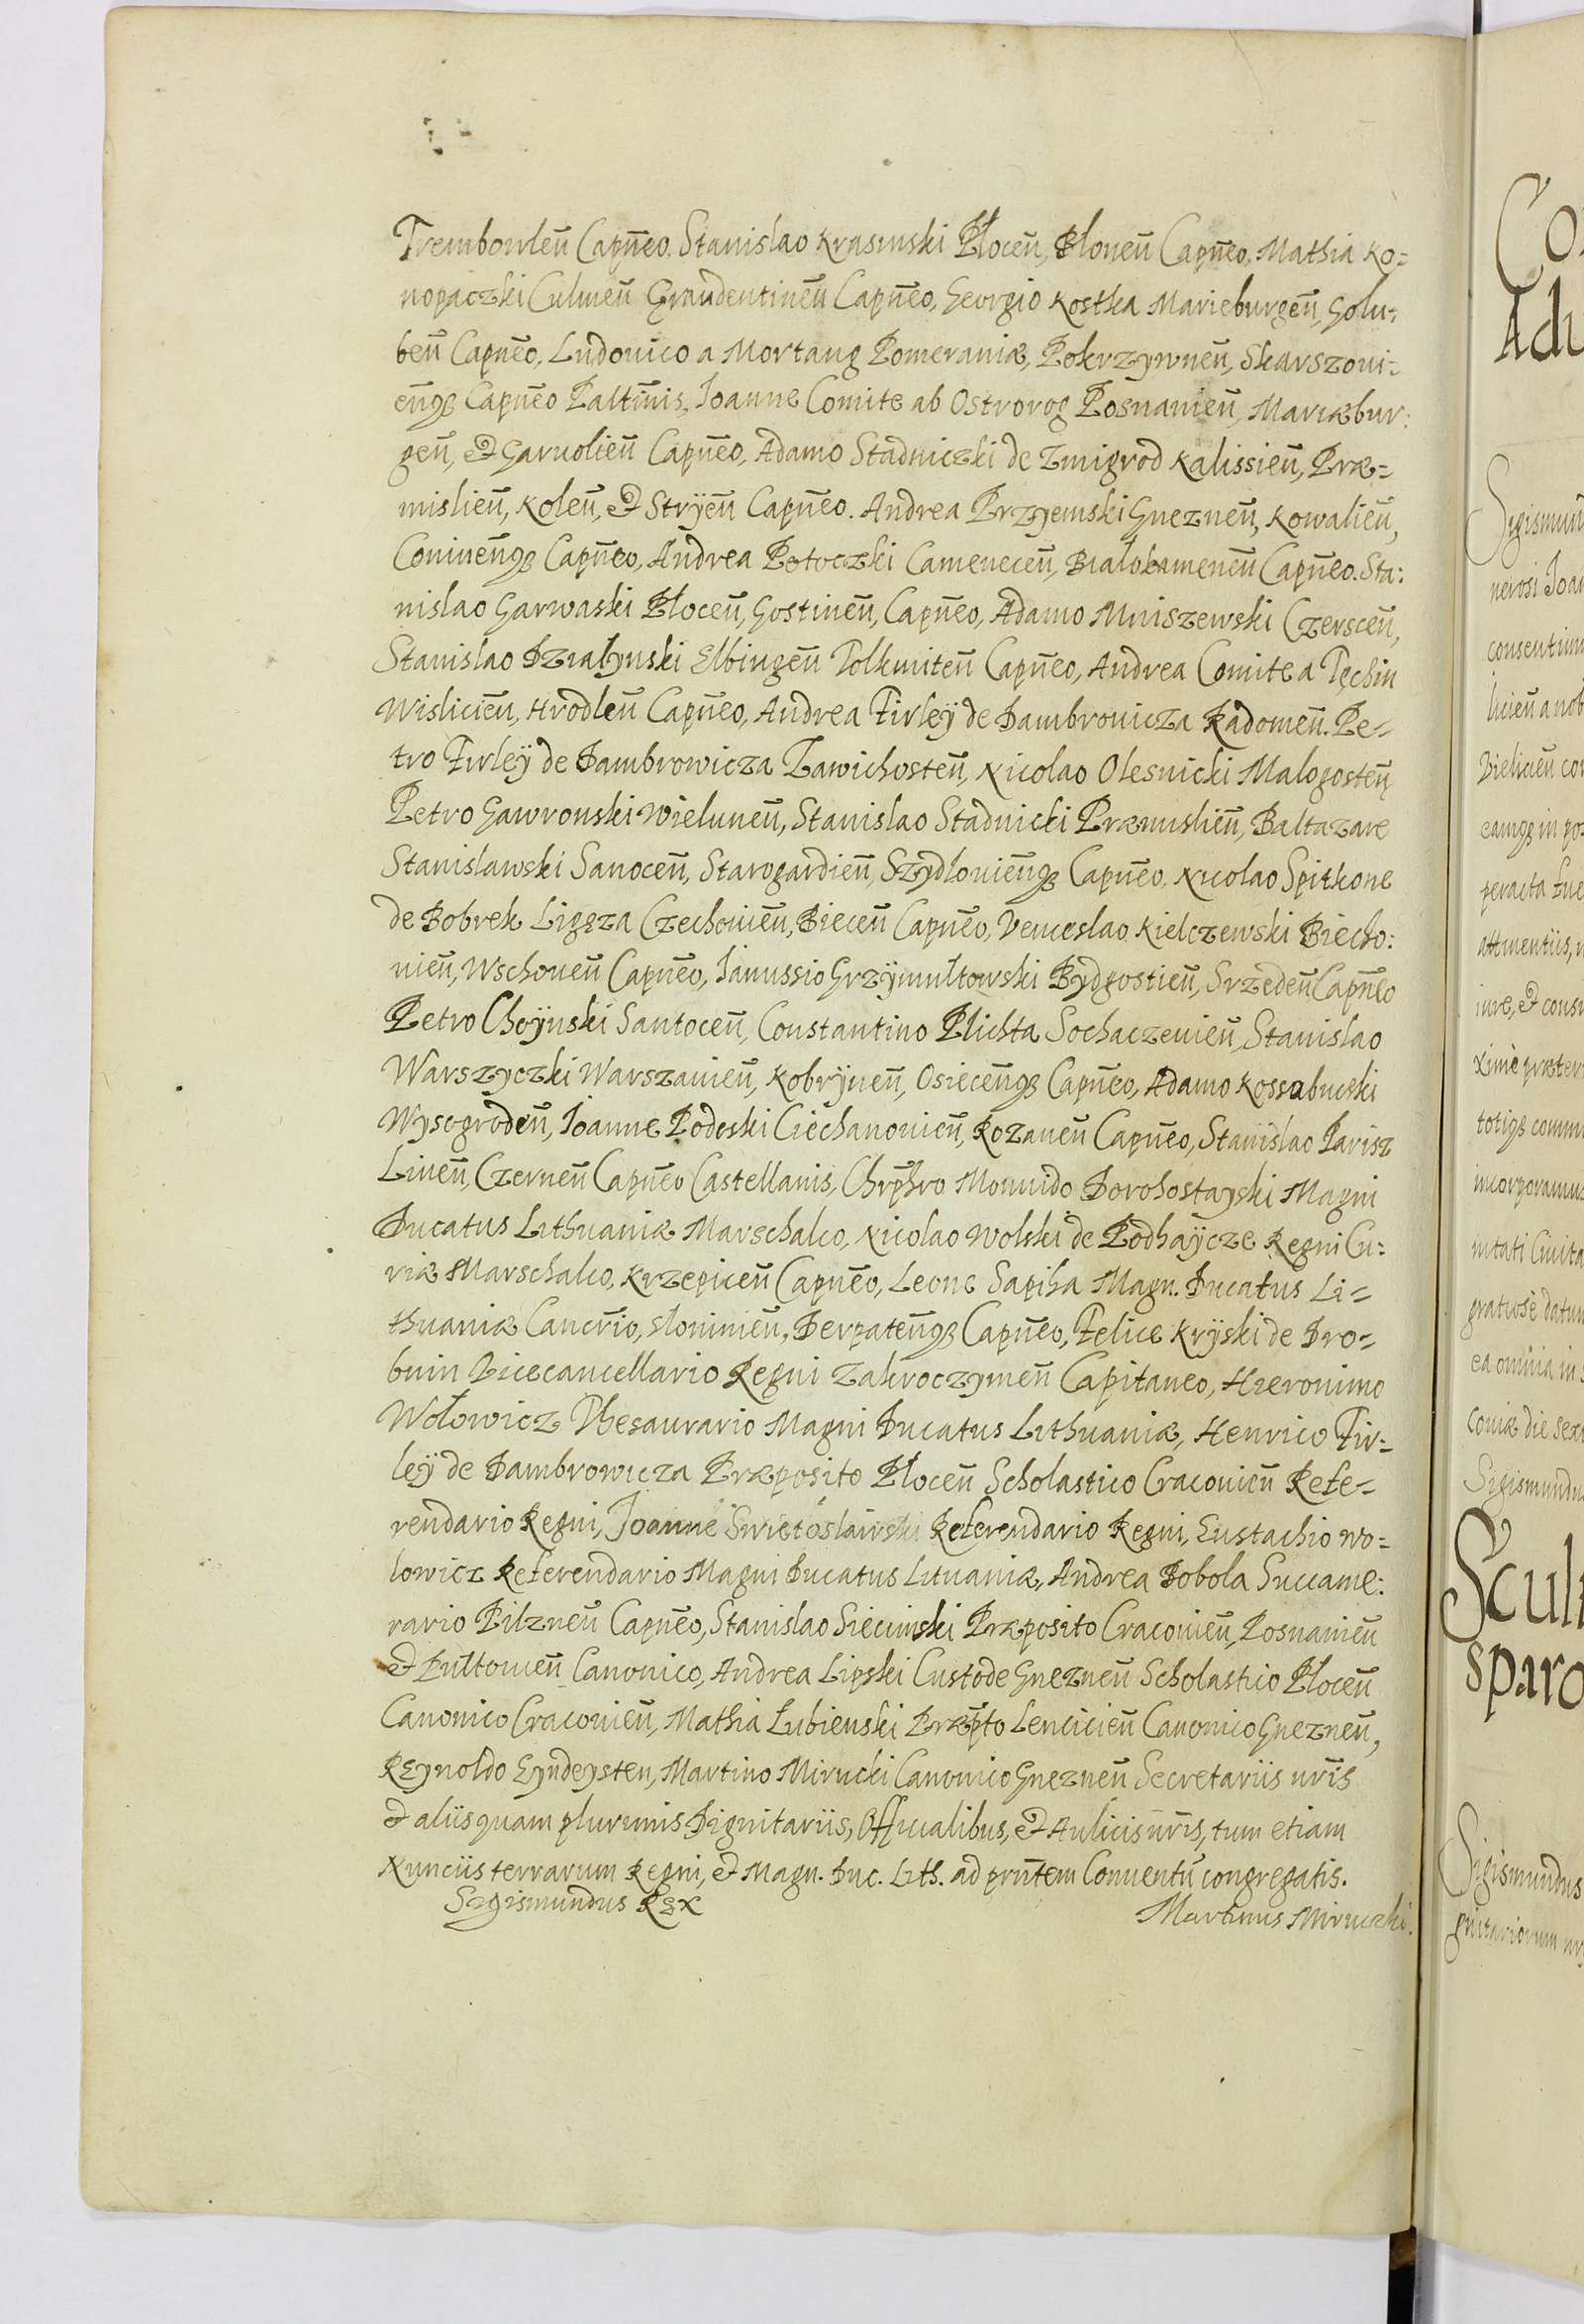 Trembowlen̄ Capn̄eo. Stanislao Krasinski Płocen̄, Płonen̄ Capn̄eo, Mathia Ko=
nopaczki Culmen̄ Graudentinen̄ Capn̄eo, Georgio Kostka Marieburgen̄, Golu:
ben̄ Capn̄eo, Ludovico a Mortang Pomeraniæ, Pokrzywnen̄, Skarszovi=
en̄qꝫ Capn̄eo Paltinis, Ioanne Comite ab Ostrorog Posnanien̄, Mariæbur:
gen̄, et Garvolien̄ Capn̄eo, Adamo Stadniczki de Zmigrod Kalissien̄, Præ=
mislien̄, Kolen̄, et Strÿen̄ Capn̄eo. Andrea Przyemski Gneznen̄, Kowalien̄,
Coninen̄qꝫ Capn̄eo, Andrea Potoczki Camenecen̄, Białokamenen̄ Capn̄eo. Sta:
nislao Garwaski Płocen̄, Gostinen̄, Capn̄eo, Adamo Mniszewski Czerscen̄,
Stanislao Dzialynski Elbingen̄ Tolkmiten̄ Capn̄eo, Andrea Comite a Tęchin
Wislicien̄, Hrodlen̄ Capn̄eo, Andrea Firleÿ de Dambrovicza Radomen̄. Pe=
tro Firleÿ de Dambrowicza Zawichosten̄, Nicolao Olesnicki Malogosten̄
Petro Gawronski Wielunen̄, Stanislao Stadnicki Præmislien̄, Baltazare
Stanislawski Sanocen̄, Starogardien̄, Szydlovien̄qꝫ Capn̄eo. Nicolao Spitkone
de Bobrek Ligęza Czechovien̄, Biecen̄ Capn̄eo, Venceslao Kielczewski Biecho:
nien̄, Wschonen̄ Capn̄eo, Ianussio Grzÿmułtowski Bydgostien̄, Srzeden̄ Capn̄eo
Petro Choÿnski Santocen̄, Constantino Plichta Sochaczevien̄, Stanislao
Warszyczki Warszavien̄, Kobrÿnen̄, Osiecen̄qꝫ Capn̄eo, Adamo Kossobucski
Wysogroden̄, Ioanne Podoski Ciechanovien̄, Rozanen̄ Capn̄eo, Stanislao Parisz
Liven̄, Czernen̄ Capn̄eo Castellanis, Chrp̄hro Monvido Dorohostayski Magni
Ducatus Lithuaniæ Marschalco, Nicolao Wolski de Podhaÿcze Regni Cu:
riæ Marschalco, Krzepicen̄ Capn̄eo, Leone Sapiha Magn. Ducatus Li=
thuaniæ Cancr̄io, Slonimen̄, Derpaten̄qꝫ Capn̄eo, Felice Krÿski de Dro=
bnin Vicecancellario Regni Zakroczymen̄ Capitaneo, Hieronimo
Wołowicz Thesaurario Magni Ducatus Lithuaniæ, Henrico Fir=
leÿ de Dambrowicza Præposito Płocen̄ Scholastico Cracovien̄ Refe=
rendario Regni, Joanne Swietoslawski Referendario Regni, Eustachio Wo=
lowicz Referendario Magni Ducatus Lituaniæ, Andrea Bobola Succame:
rario Pilznen̄ Capn̄eo, Stanislao Siecinski Præposito Cracovien̄, Posnanien̄
et Pultovien̄ Canonico, Andrea Lipski Custode Gneznen̄ Scholastico Płocen̄
Canonico Cracovien̄, Mathia Łubienski Præp̄to Lencicien̄ Canonico Gneznen̄,
Reynoldo Eyndeysten, Martino Mirucki Canonico Gneznen̄ Secretariis nr̄is
et aliis quam plurimis Dignitariis, Officialibus, et Aulicis nr̄is, tum etiam
Nunciis terrarum Regni, et Magn. Duc. Lith. ad prn̄tem Conventū congregatis.
Sigismundus Rex
Martinus Miruczki.
Co
Adu
Sigismun
nerosi Joan
consentim
licien̄ a nob
Bielicen̄ con
eamqꝫ in po
peracta fue
attinentiis,
iure, et consu
xime præter
totiqꝫ commu
incorporamus
nitati Civita
gratiose datum
ea omnia in
coviæ die sex
Sigismundu
Scul
sparo
Sigismundus
gnitariorum